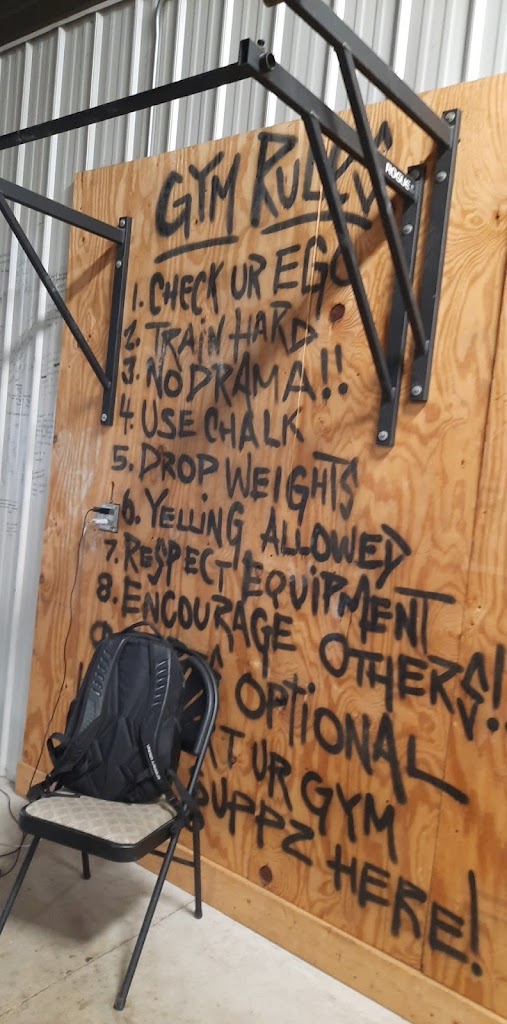 GYM RULES
1. CHECK UR EGO
2. TRAIN HARD
3. NO DRAMA!!
4. USE CHALK
5. DROP WEIGHTS
6. YELLING ALLOWED
7. RESPECT EQUIPMENT
8. ENCOURAGE OTHERS!!
OPTIONAL
UR GYM
HERE!
ROGUE
UNDER ARMOUR